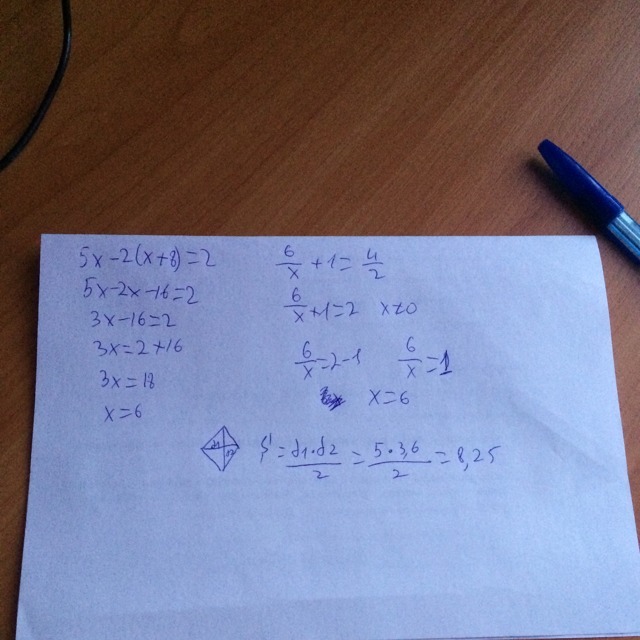 5x-2(x+8)=2
5x-2x-16=2
3x-16=2
3x=2+16
3x=18
x=6
6/x+1=4/2
6/x+1=2 x≠0
6/x=2-1 6/x=1
x=6
d1 d2
S=d1·d2/2=5·3,6/2=8,25